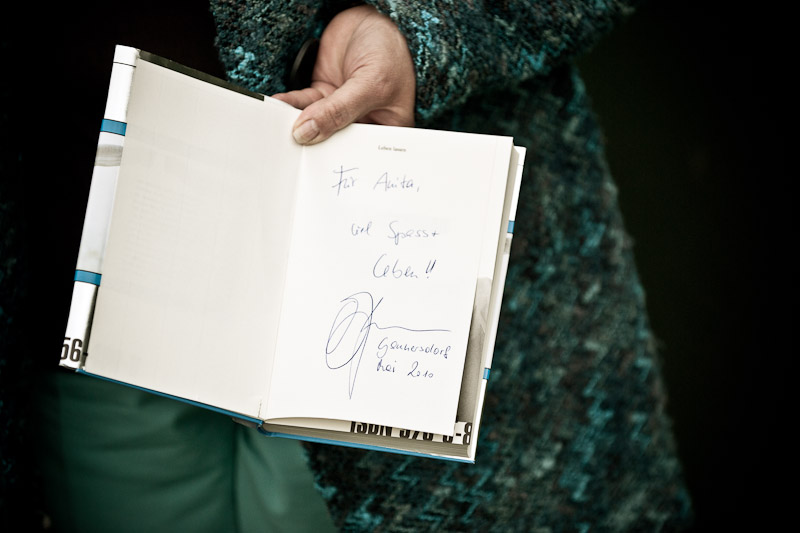 Leben lassen
Für Anita,
viel Spass +
Leben!!
Gaunersdorf
Mai 2010
56-
ISBN 978-3-8